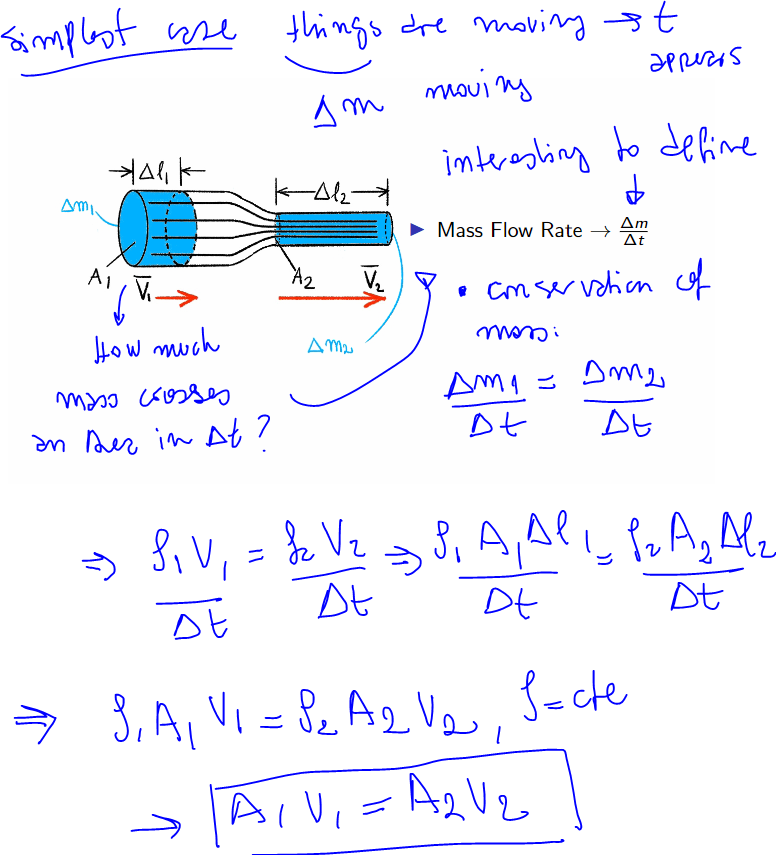 simplest case things are moving → t
appears
Δm moving
interesting to define
Δl₁
Δl₂
Δm₁
▶ Mass Flow Rate → Δm/Δt
A₁ V̅₁
A₂ V̅₂
• conservation of
mass:
How much
Δm₂
mass crosses
an Area in Δt?
Δm₁/Δt = Δm₂/Δt
⇒ ρ₁V₁/Δt = ρ₂V₂/Δt ⇒ ρ₁A₁Δl₁/Δt = ρ₂A₂Δl₂/Δt
⇒ ρ₁A₁V₁ = ρ₂A₂V₂, ρ=cte
→ A₁V₁ = A₂V₂